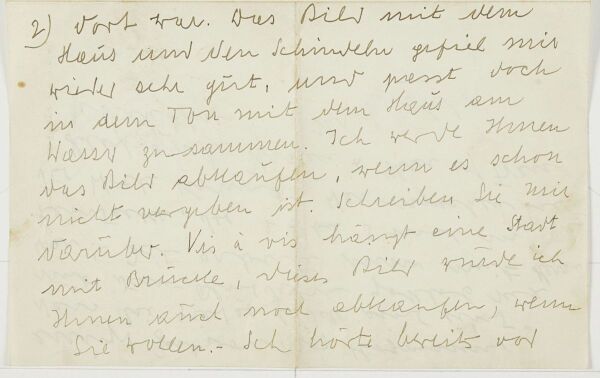 2) dort war. Das Bild mit dem
Haus und den Schindeln gefiel mir
wieder sehr gut, und passt doch
in dem Ton mit dem Haus am
Wasser zusammen. Ich werde Ihnen
das Bild abkaufen, wenn es schon
nicht vergeben ist. Schreiben Sie mir
darüber. Vis à vis hängt eine Stadt
mit Brücke, dieses Bild würde ich
Ihnen auch noch abkaufen, wenn
Sie wollen.- Ich hörte bereits vor